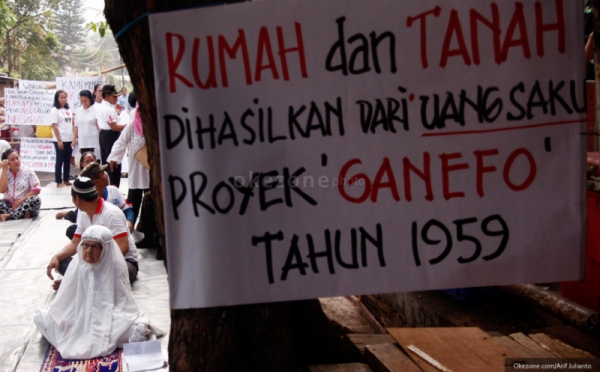 RUMAH dan TANAH
DIHASILKAN DARI UANG SAKU
PROYEK 'GANEFO'
TAHUN 1959
okezone photo
Okezone.com/Arif Julianto